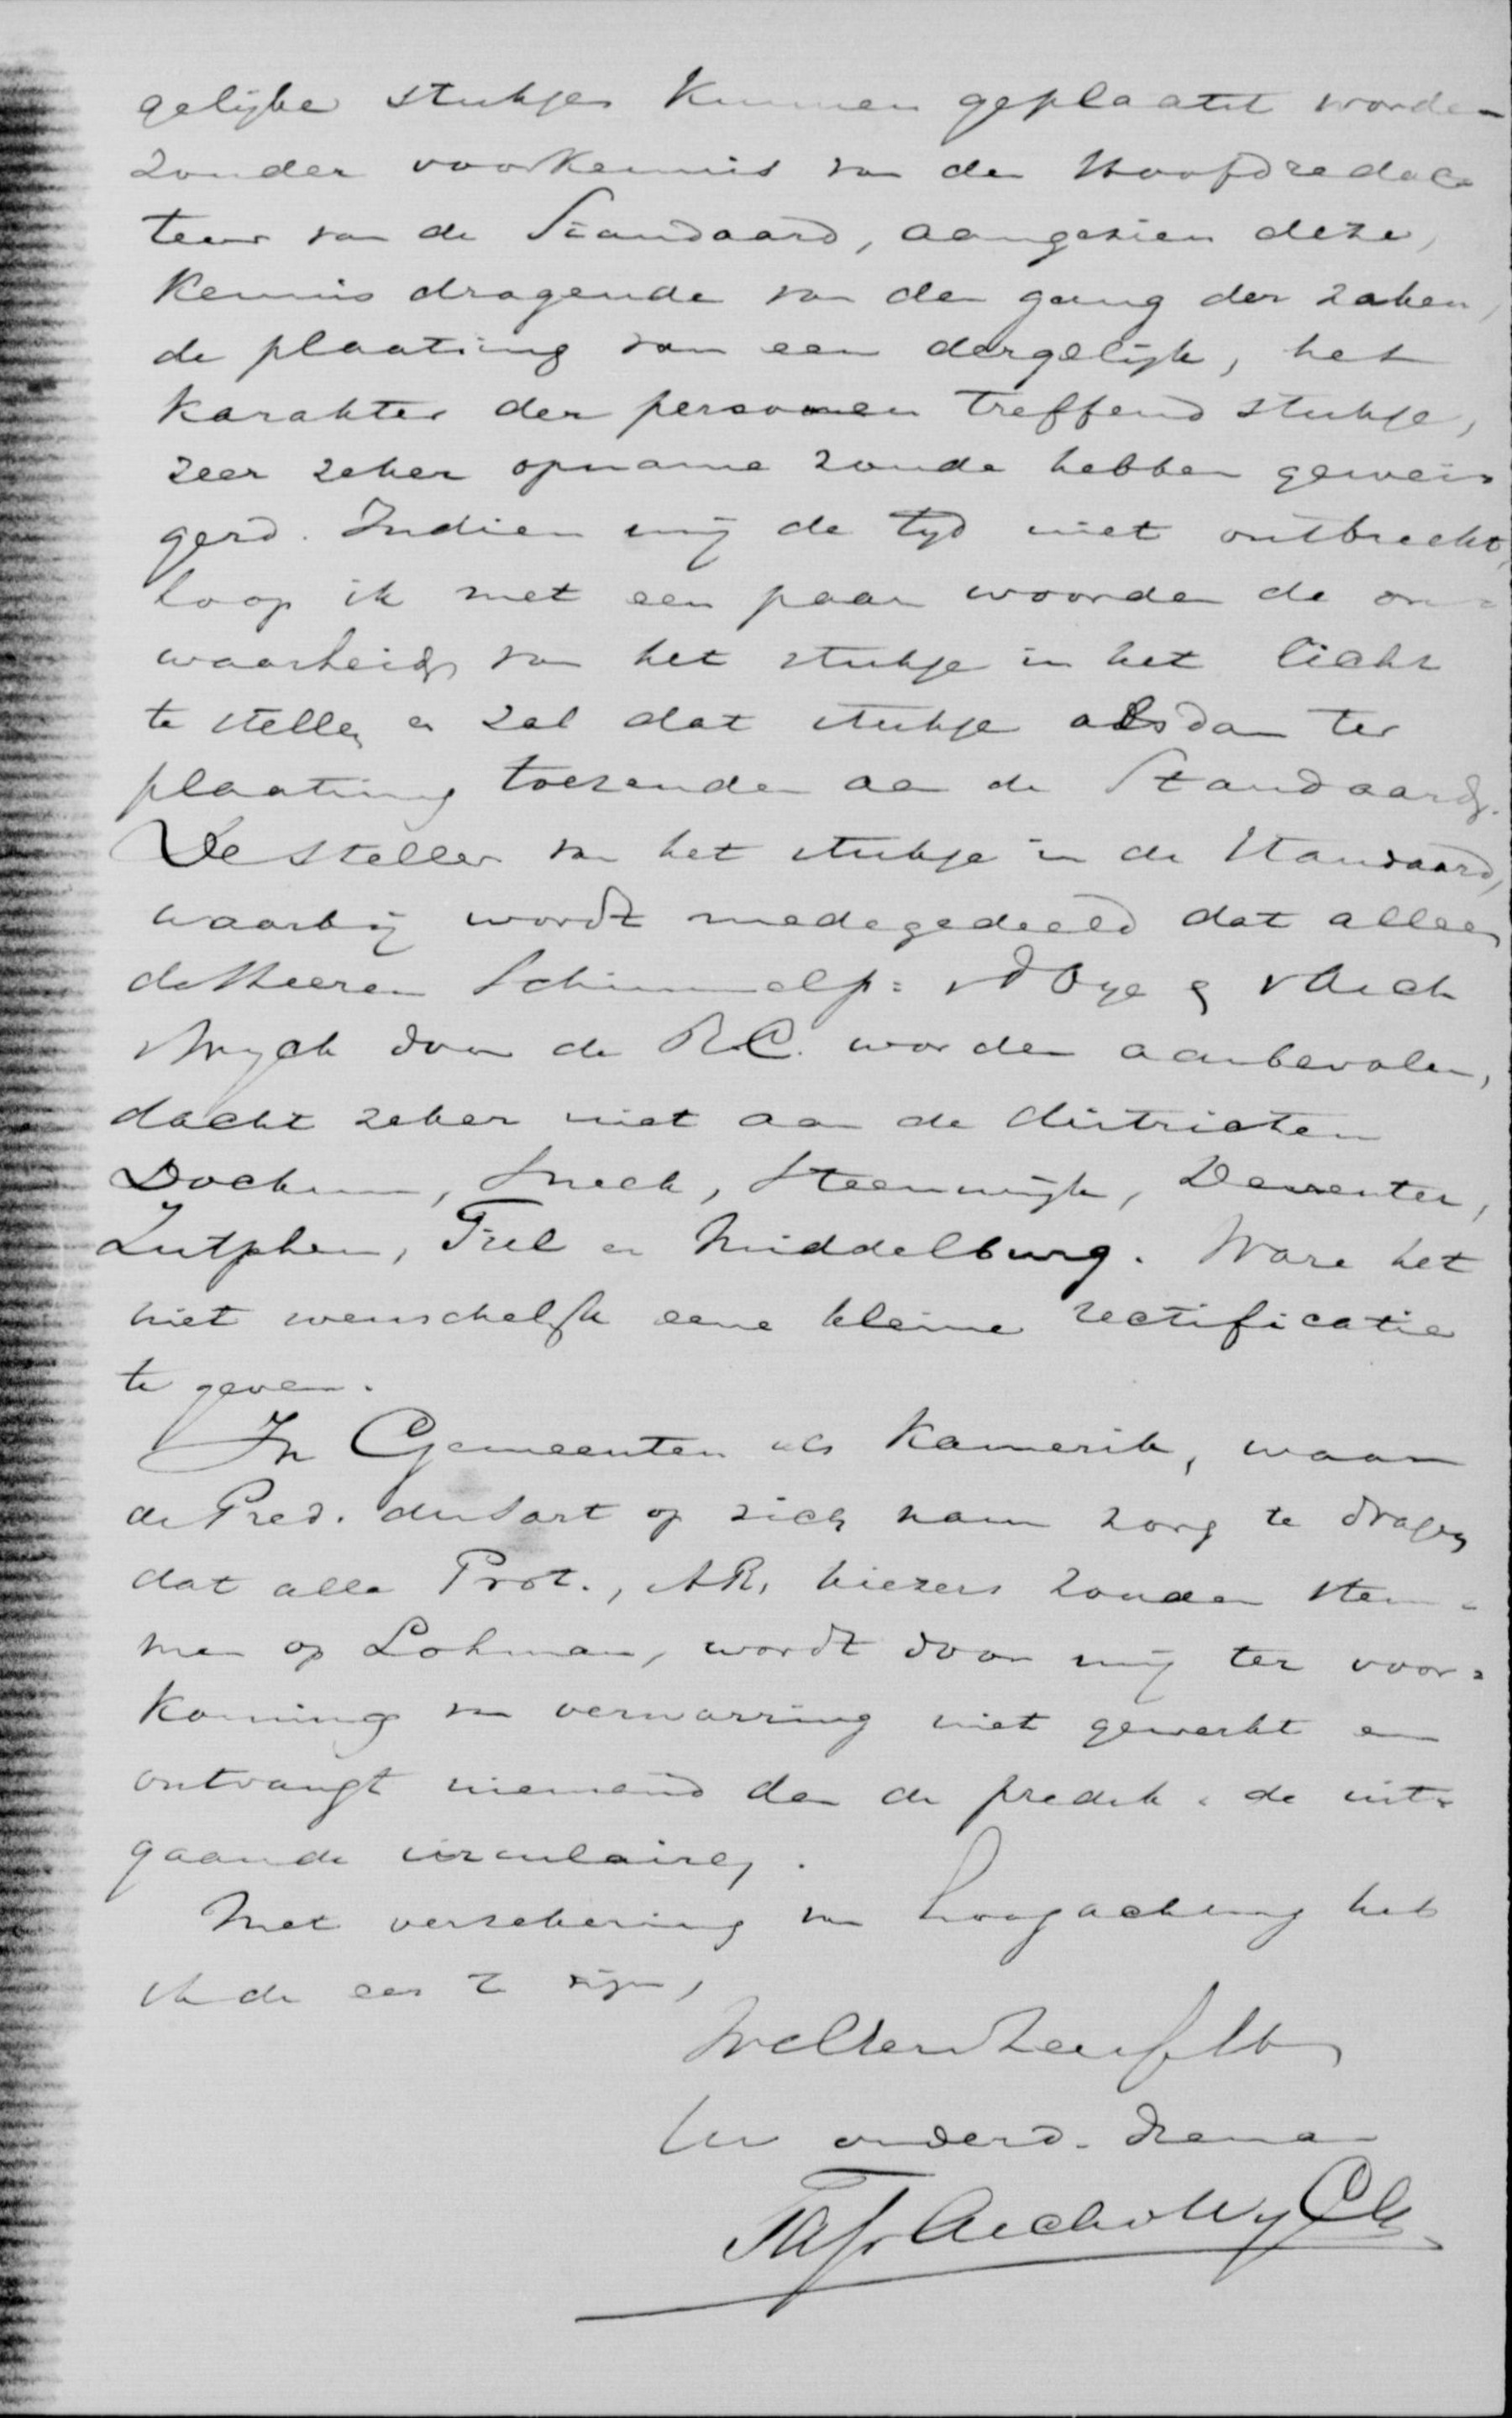 gelijke stukjes kunnen geplaatst worden
zonder voorkennis van den Hoofdredac=
teur van de Standaard, aangezien deze,
kennis dragende van den gang der zaken,
de plaatsing van een dergelijk, het
karakter der personen treffend stukje,
zeer zeker opname zoude hebben gewei=
gerd. Indien mij de tijd niet ontbreekt,
hoop ik met een paar woorden de on=
waarheid van het stukje in het licht
te stellen en zal dat stukje alsdan ter
plaatsing toezenden aan de Standaard.
De steller van het stukje in de Standaard,
waarbij wordt medegedeeld dat alleen
de Heeren Schimmelp: vd Oye & v Asch
v Wyck door de R.C. worden aanbevolen,
dacht zeker niet aan de districten
Dockum, Sneek, Steenwijk, Deventer,
Zutphen, Tiel en Middelburg. Ware het
niet wenschelijk eene kleine rectificatie
te geven.
In Gemeenten als Kamerik, waar
de Pred. dusart op zich nam zorg te dragen
dat alle Prot., A.R. kiezers zouden stem=
men op Lohman, wordt door mij ter voor=
koming van verwarring niet gewerkt en
ontvangt niemand dan de predik. de uit=
gaande circulaires.
Met verzekering van hoogachting heb
ik de eer te zijn,
WelEerw
Uw onderd. dienaar